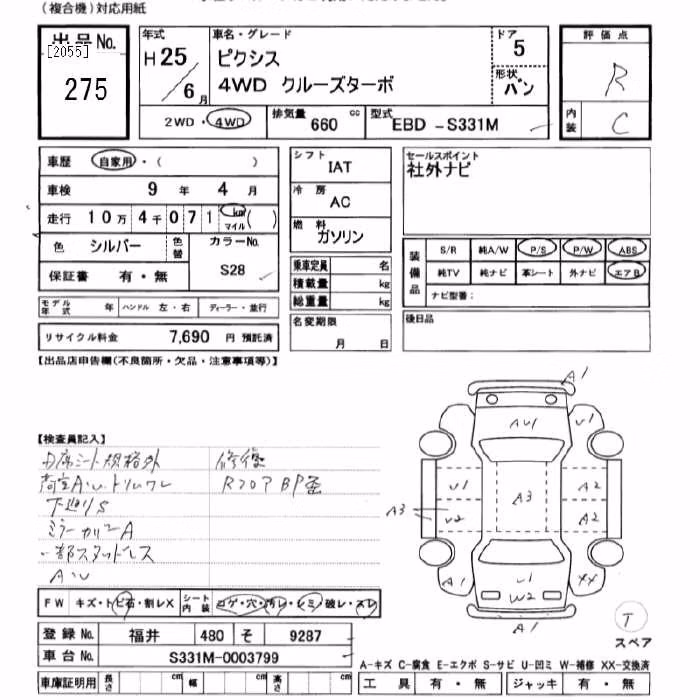 (複合機)対応用紙
出品No. [2055] 275
年式 H25/6月
車名・グレード ピクシス 4WD クルーズターボ
ドア 5
形状 バン
評価点 R
内装 C
2WD・4WD 排気量 660 cc 型式 EBD -S331M
車歴 自家用・( )
車検 9 年 4 月
走行 10万 4千 071 km マイル ( )
色 シルバー 色替 カラーNo. S28
保証書 有・無
モデル年式 年 ハンドル 左・右 ディーラー・並行
リサイクル料金 7,690 円 預託済
シフト IAT
冷房 AC
燃料 ガソリン
乗車定員 名
積載量 kg
総重量 kg
名変期限 月 日
セールスポイント
社外ナビ
装備品 S/R 純A/W P/S P/W ABS
純TV 純ナビ 革シート 外ナビ エアB
ナビ型番:
後日品
【出品店申告欄(不良箇所・欠品・注意事項等)】
【検査員記入】
シート規格外 修復
荷室A.U.トリムワレ RフロアBP歪
下廻りS
ミラーカバーA
一部スタッドレス
A U
FW キズ・トビ石・割レX シート内装 コゲ・穴・汚レ・シミ・破レ・スレ
登録No. 福井 480 そ 9287
車台No. S331M-0003799
車庫証明用 長さ cm 幅 cm 高さ cm
A1
AU1
U1
U1
A2
A3
A3
U2
A2
A1
U1
W2
XX
A1
T
スペア
A-キズ C-腐食 E-エクボ S-サビ U-凹ミ W-補修 XX-交換済
工具 有・無 ジャッキ 有・無